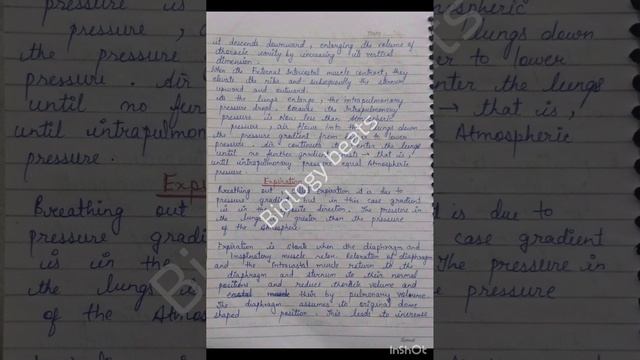 it descends downward, enlarging the volume of
thoracic cavity by increasing its vertical
dimension.
When the External Intercostal muscle contract, they
elevate the ribs and subsequently the sternum
upward and outward.
As the lungs enlarge, the intrapulmonary
pressure drops. Because the Intrapulmonary
pressure is Now less than Atmospheric
pressure, air flows into the lungs down
the pressure gradient from to lower
pressure. Air continues to enter the lungs
until no further gradient exists → that is,
until intrapulmonary pressure equal Atmospheric
pressure
Expiration
Breathing out expiration it is due to
pressure gradient but in this case gradient
is in the opposite direction. The pressure in
the lungs is greater than the pressure
of the Atmosphere
Expiration is starts when the diaphragm and
Inspiratory muscle relax. Relaxation of diaphragm
and the intercostal muscle return to the
diaphragm and sternum to their normal
positions and reduce thoracic volume and
their by pulmonary volume.
The diaphragm assumes its original dome
shaped position. This leads to increase
Biology beats
InShOt